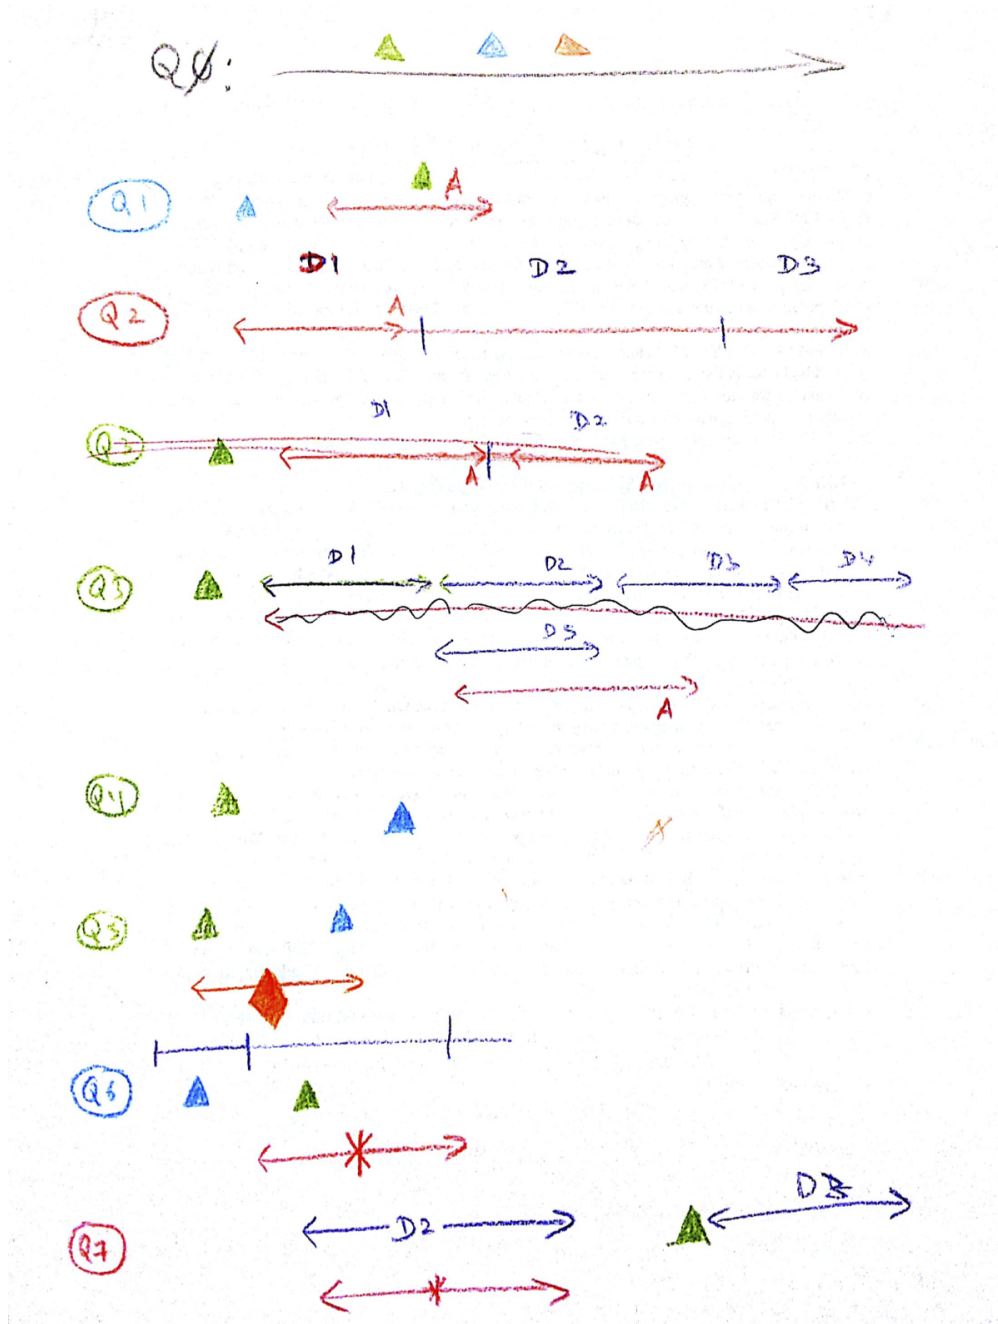 Q0:
Q1 A
D1 D2 D3
Q2 A
D1 D2
Q3
A A
Q3 D1 D2 D3 D4
D5
A
Q4
Q5
Q6
D3
Q7 D2